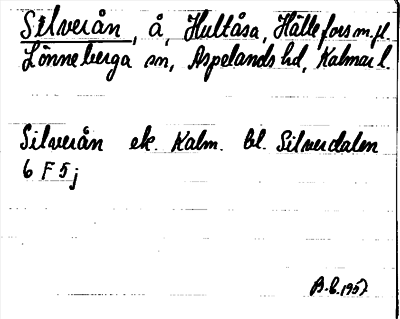 Silverån, å, Hultåsa, Hällefors m.fl.
Lönneberga sn, Aspelands hd, Kalmar l.
Silverån ek. Kalm. bl. Silverdalen
6 F 5 j
B.E. 1957